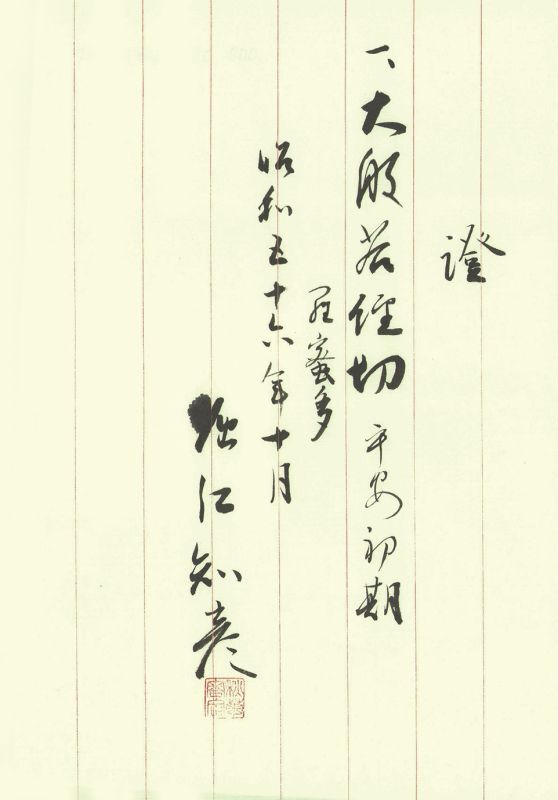 證
一、大般若経切 平安初期
羅蜜多
昭和五十六年十月
堀江知彦